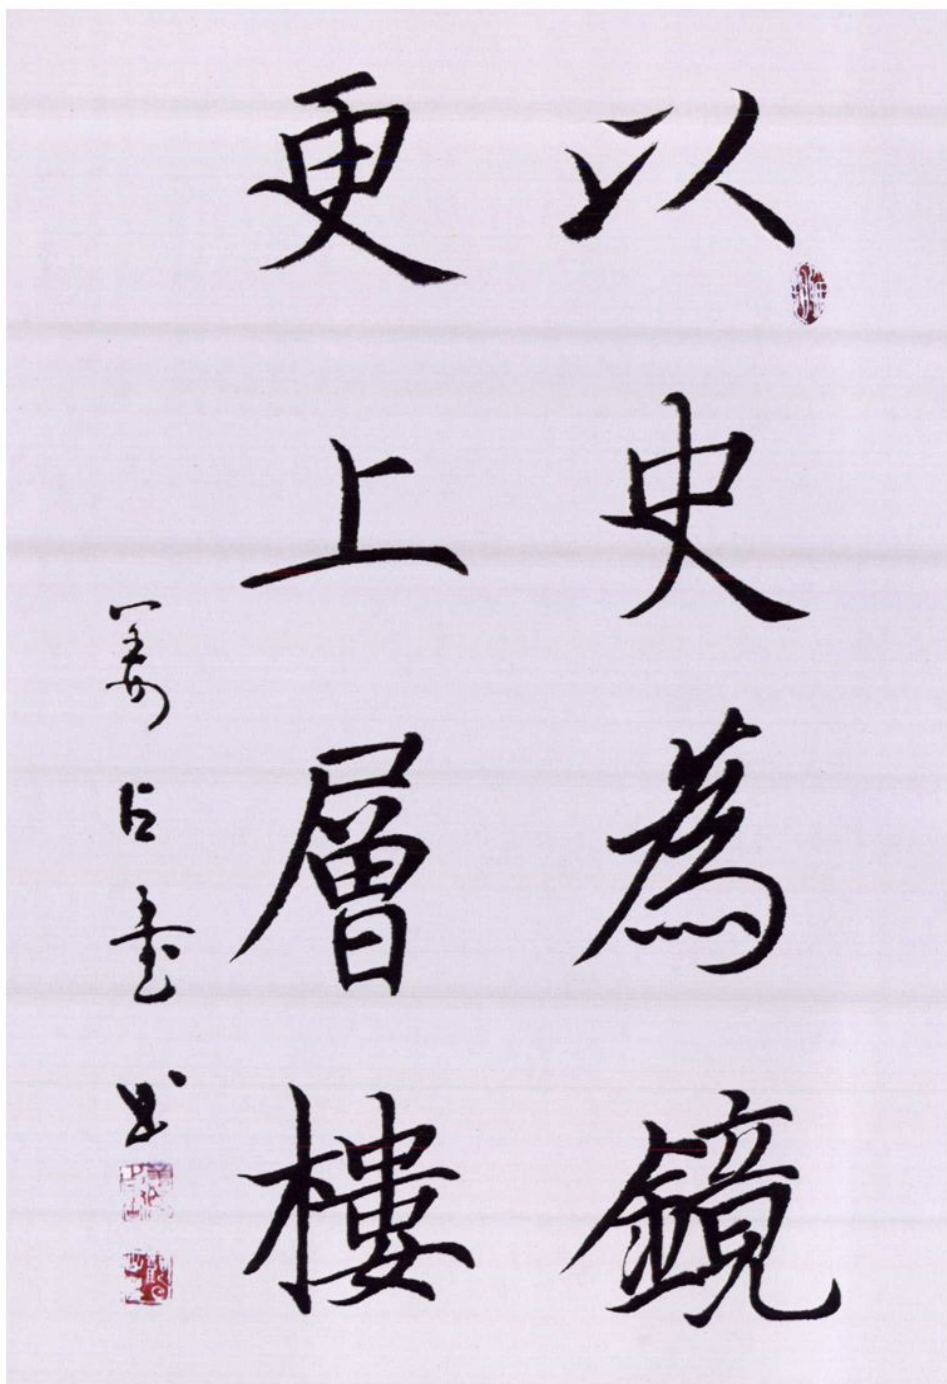 以史為鏡
更上層樓